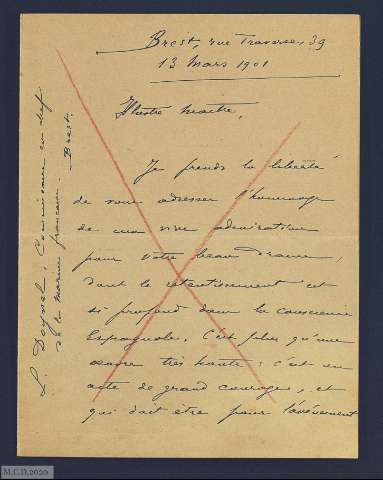 Brest, rue Traverse, 39
13 Mars 1901
Illustre maître,
Je prends la liberté
de vous adresser l'hommage
de ma vive admiration
pour votre beau drame,
dont le retentissement est
si profond dans la conscience
Espagnole. C'est plus qu'une
œuvre très haute : c'est un
acte de grand courage, et
qui doit être pour l'avènement
L. Commissaire en chef
de la marine française. Brest.
M.C.D.2020